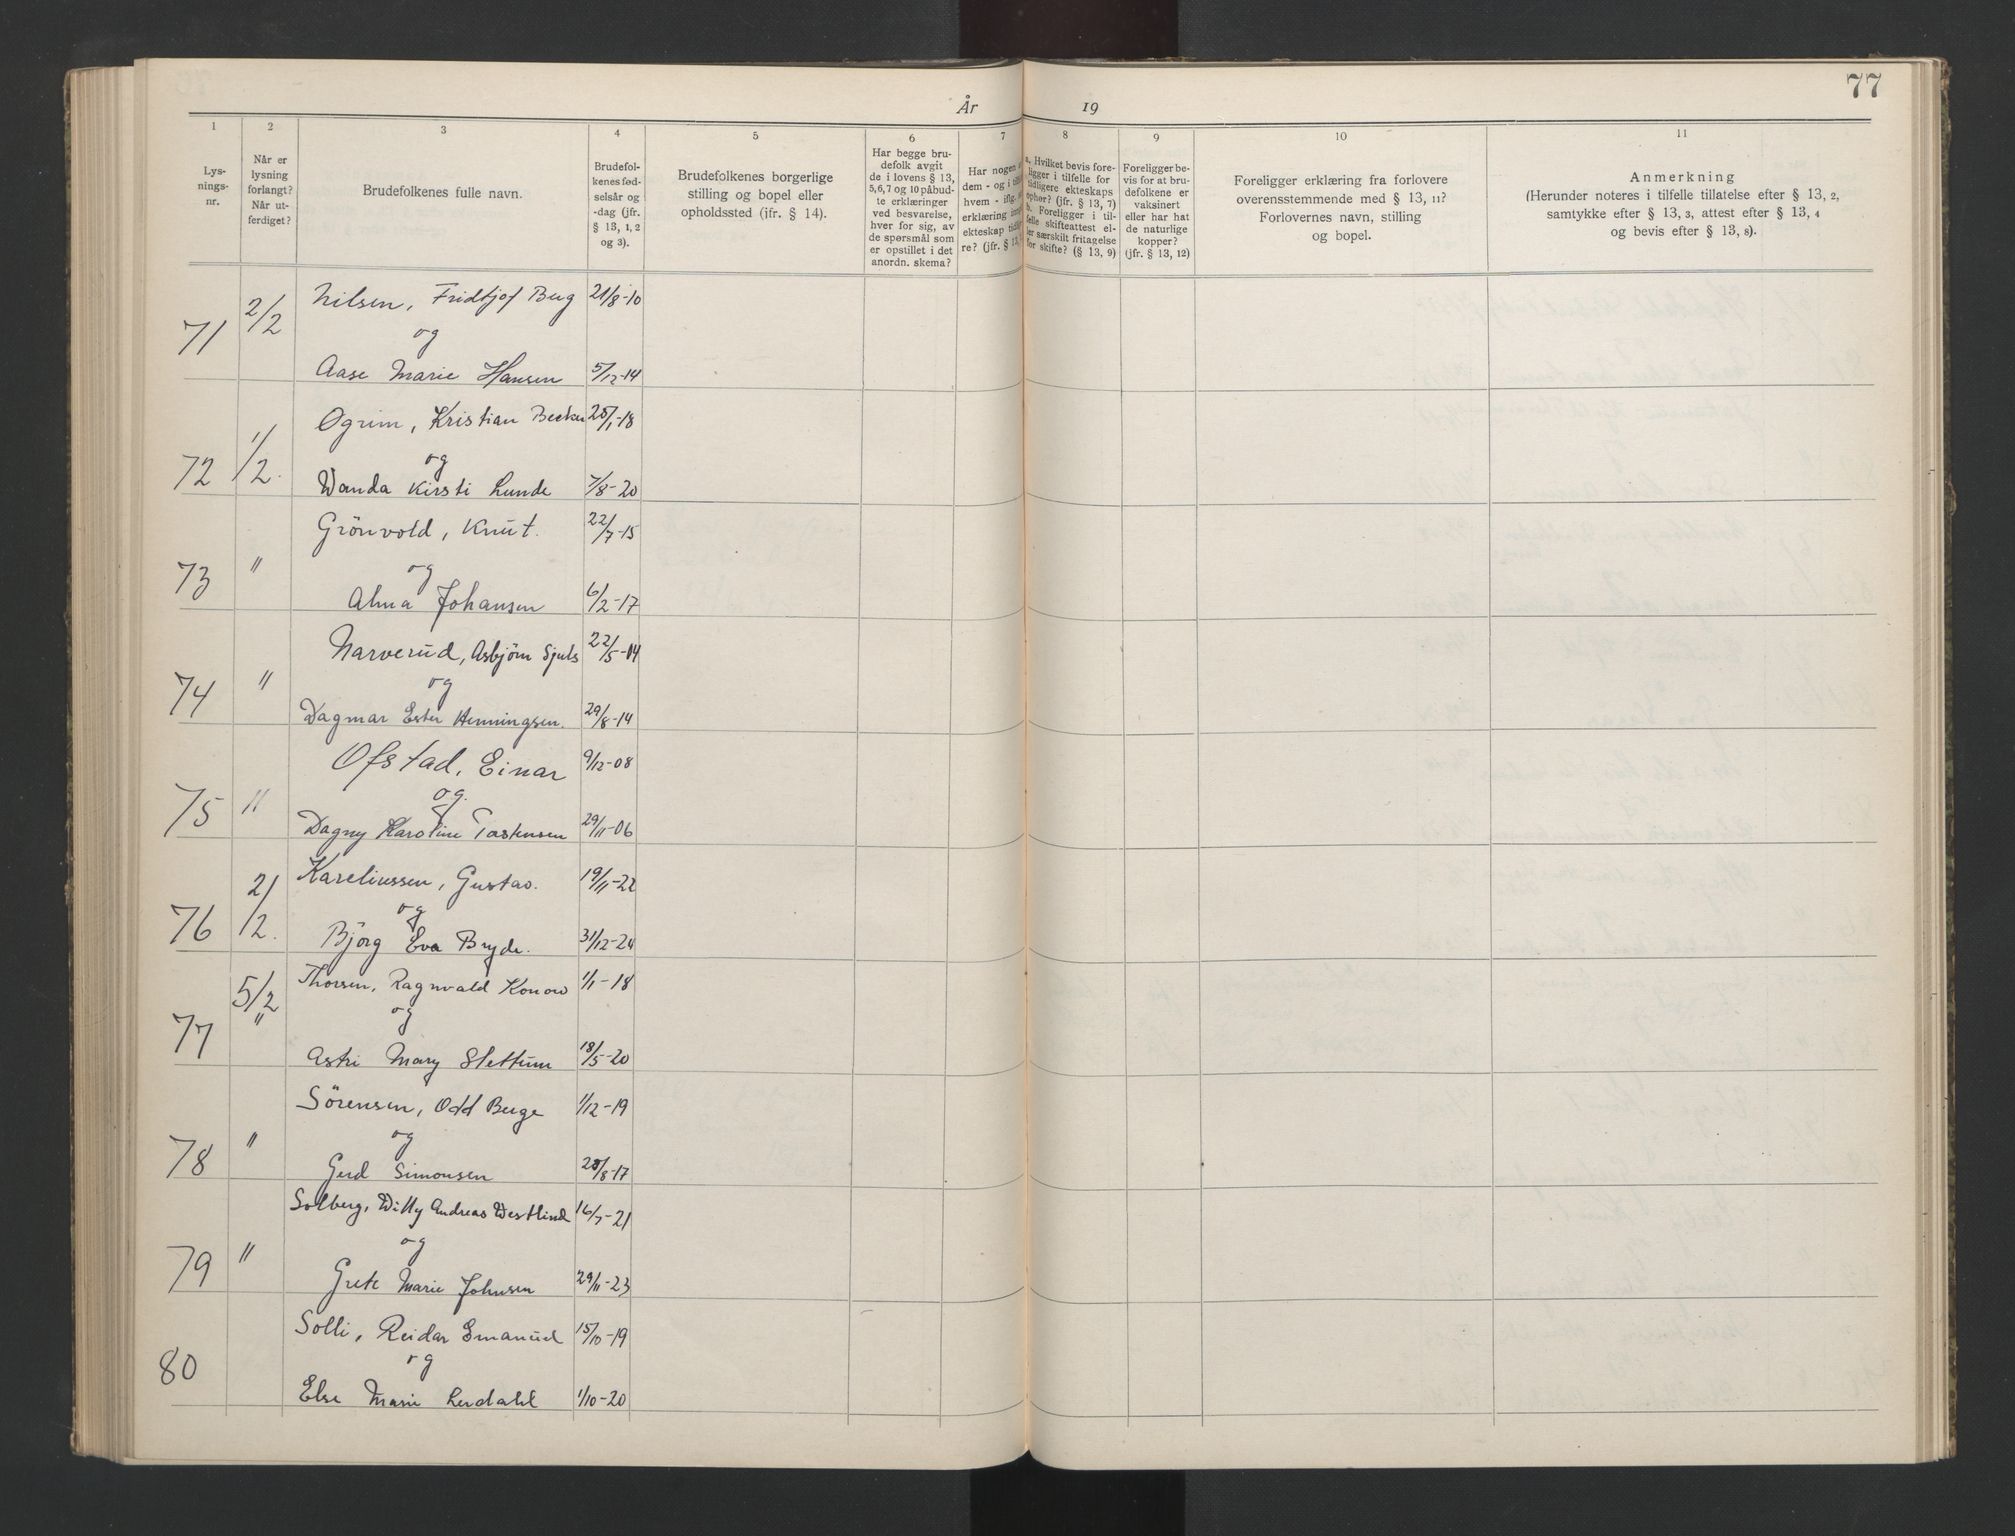 77
År 19
1 2 3 4 5 6 7 8 9 10 11
Lys-
nings-
nr.
Når er
lysning
forlangt?
Når ut-
ferdiget?
Brudefolkenes fulle navn.
Brudefol-
kenes fød-
selsår og
-dag (jfr.
§ 13, 1, 2
og 3).
Brudefolkenes borgerlige
stilling og bopel eller
opholdssted (jfr. § 14).
Har begge bru-
defolk avgit
de i lovens § 13,
5,6,7 og 10 påbud-
te erklæringer
ved besvarelse,
hver for sig, av
de spørsmål som
er opstillet i det
anordn. skema?
Har nogen
dem - og i
hvem - iflg.
erklæring
ekteskap
re? (jfr. § 13,
a. Hvilket bevis fore-
ligger i tilfelle for
tidligere ekteskaps
ophør? (jfr. § 13, 7)
b. Foreligger i til-
felle skifteattest el-
ler særskilt fritagelse
for skifte? (§ 13, 9)
Foreligger be-
vis for at bru-
defolkene er
vaksinert
eller har hat
de naturlige
kopper?
(jfr. § 13, 12)
Foreligger erklæring fra forlovere
overensstemmende med § 13, 11?
Forlovernes navn, stilling
og bopel.
Anmerkning
(Herunder noteres i tilfelle tillatelse efter § 13, 2,
samtykke efter § 13, 3, attest efter § 13, 4
og bevis efter § 13, 8).
71 2/2 Nilsen, Fridtjof Berg 21/8-10
og
Aase Marie Hansen 5/12-14
72 1/2. Ogrim, Kristian Becker 25/1-18
og
Wanda Kirsti Lunde 7/8-20
73 " Grönvold, Knut. 22/7-15
og
Alma Johansen 6/2-17
74 " Narverud, Asbjörn Sjuls 22/5-04
og
Dagmar Ester Henningsen. 29/8-14
75 " Ofstad, Einar 9/12-08
og.
Dagny Karoline Torstensen 29/11-06
76 2/2. Kareliussen, Gustav. 19/11-22
og
Björg Eva Bryde. 31/12-24
77 5/2 " Thorsen, Ragnvald Konow 1/1-18
og
Astri Mary Slettum 18/5-20
78 " Sörensen, Odd Berge 1/12-19
og
Gerd Simonsen 28/8-17
79 " Solberg, Willy Andreas Westlind 16/7-21
og
Grete Marie Johnsen 29/11-23
80 Solli, Reidar Emanuel 15/10-19
og
Else Marie Lerdahl 1/10-20